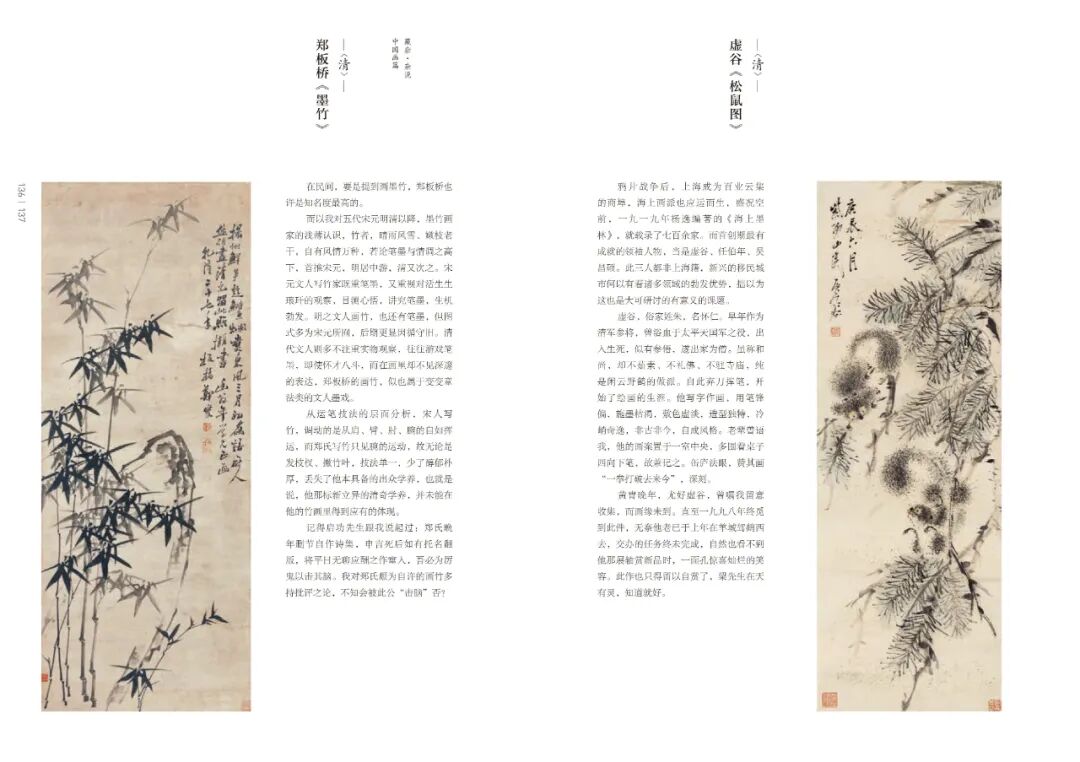 136 | 137
郑板桥《墨竹》
—〈清〉—
藏后·杂说
中国画篇
在民间，要是提到画墨竹，郑板桥也
许是知名度最高的。
而以我对五代宋元明清以降，墨竹画
家的浅薄认识，竹者，晴雨风雪，嫩枝老
干，自有风情万种，若论笔墨与情调之高
下，首推宋元，明居中游，清又次之。宋
元文人写竹家既重笔墨，又重视对活生生
琅玕的观察，目测心悟，讲究笔墨，生机
勃发。明之文人画竹，也还有笔墨，但图
式多为宋元所囿，后期更显因循守旧。清
代文人则多不注重实物观察，往往游戏笔
端，即使怀才八斗，而在画里却不见深邃
的表达，郑板桥的画竹，似也属于变变章
法类的文人墨戏。
从运笔技法的层面分析，宋人写
竹，调动的是从肩、臂、肘、腕的自如挥
运，而郑氏写竹只见腕的运动，故无论是
发枝杈、撇竹叶，技法单一，少了醇郁朴
厚，丢失了他本具备的出众学养，也就是
说，他那标新立异的清奇学养，并未能在
他的竹画里得到应有的体现。
记得启功先生跟我说起过：郑氏晚
年删节自作诗集，申言死后如有托名翻
版，将平日无聊应酬之作窜入，吾必为厉
鬼以击其脑。我对郑氏颇为自许的画竹多
持批评之论，不知会被此公“击脑”否？
虚谷《松鼠图》
—〈清〉—
鸦片战争后，上海成为百业云集
的商埠，海上画派也应运而生，盛况空
前，一九一九年杨逸编著的《海上墨
林》，就载录了七百余家。而首创期最有
成就的领袖人物，当是虚谷、任伯年、吴
昌硕。此三人都非上海籍，新兴的移民城
市何以有着诸多领域的勃发优势，揣以为
这也是大可研讨的有意义的课题。
虚谷，俗家姓朱，名怀仁。早年作为
清军参将，曾浴血于太平天国军之役，出
入生死，似有参悟，遂出家为僧。虽称和
尚，却不茹素、不礼佛、不驻寺庙，纯
是闲云野鹤的做派。自此弃刀挥笔，开
始了绘画的生涯。他写字作画，用笔锋
偏，施墨枯渴，敷色虚淡，造型独特，冷
峭奇逸，非古非今，自成风格。老辈尝语
我，他的画案置于一室中央，多围着桌子
四向下笔，故兼记之。缶庐法眼，赞其画
“一拳打破去来今”，深刻。
黄胄晚年，尤好虚谷，曾嘱我留意
收集，而画缘未到。直至一九九八年终觅
到此件，无奈他老已于上年在羊城驾鹤西
去，交办的任务终未完成，自然也看不到
他那展轴赏新品时，一面孔惊喜灿烂的笑
容。此作也只得留以自赏了，梁先生在天
有灵，知道就好。